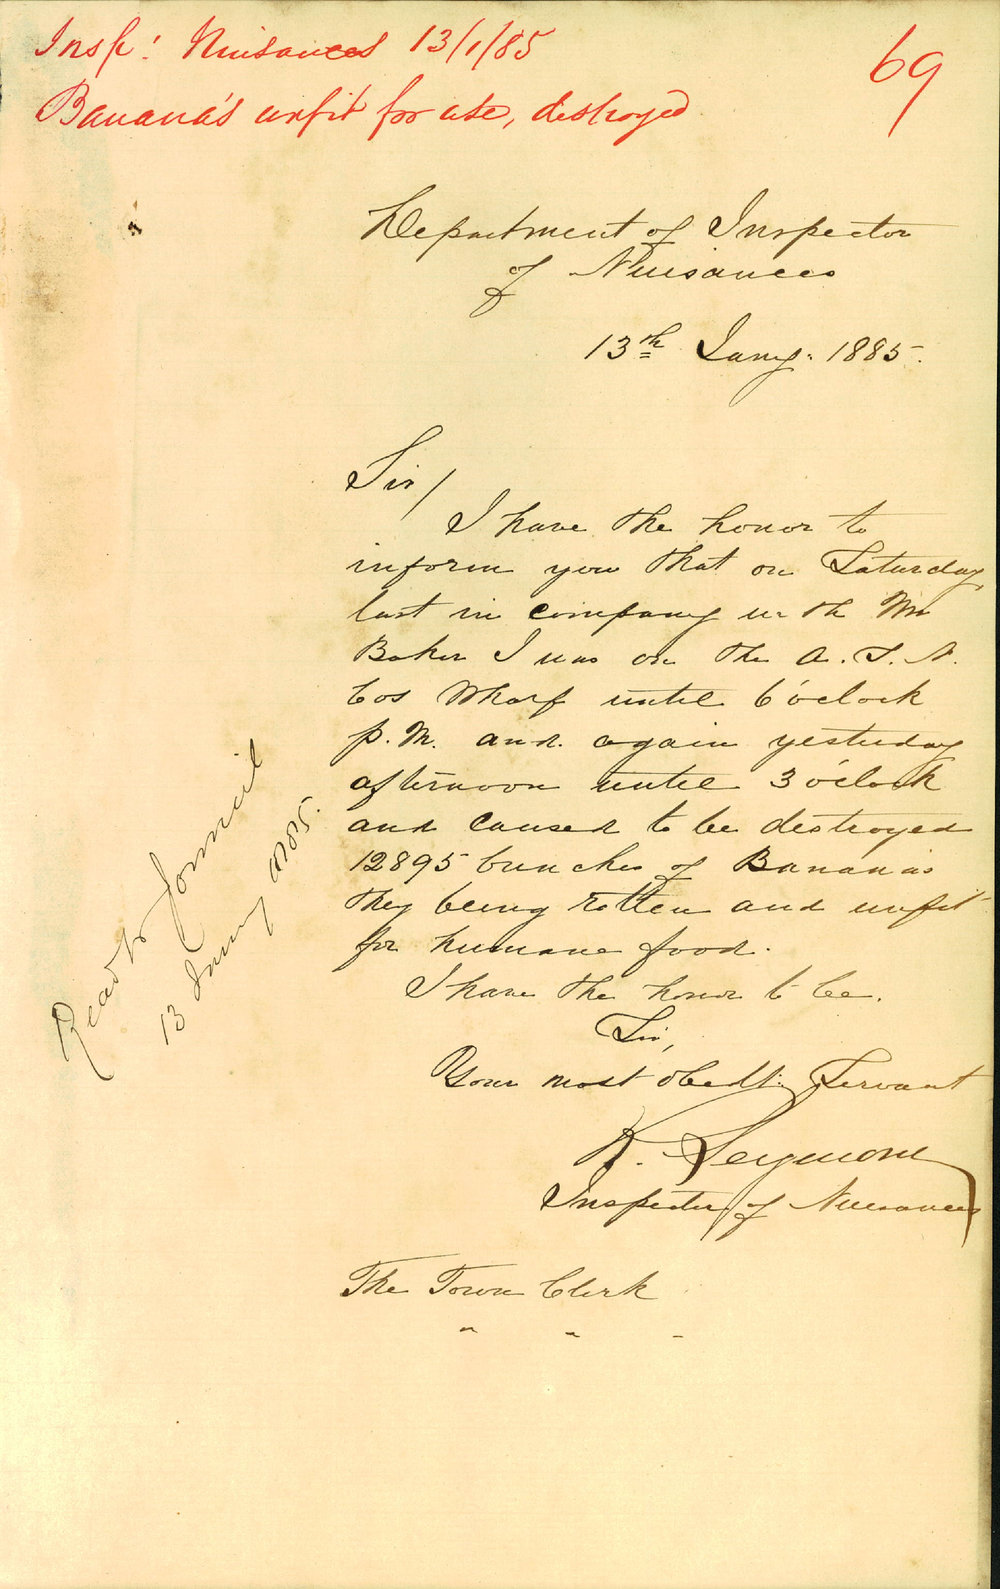 Insp: Nuisances 13/1/85
69
Banana's unfit for use, destroyed
Department of Inspector
of Nuisances
13th Jany. 1885.
Sir/
I have the honor to
inform you that on Saturday
last in company with Mr
Baker I was on the A. S. N.
Cos Wharf until 6 o'clock
p.M. and again yesterday
afternoon until 3 o'clock
and caused to be destroyed
12895 bunches of Bananas
they being rotten and unfit
for humane food.
I have the honor to be.
Sir,
Your most obedt. Servant
R. Seymour
Inspector of Nuisances
The Town Clerk
Read to Council
13 Jany 1885.